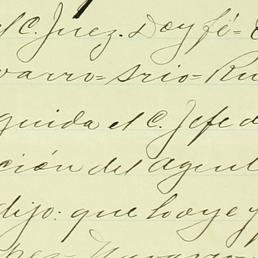 el C. Juez. Doy fé=
varro= Srio= Ru
guida el C. Jefe d
ción del agent
dijo: que lo oye y